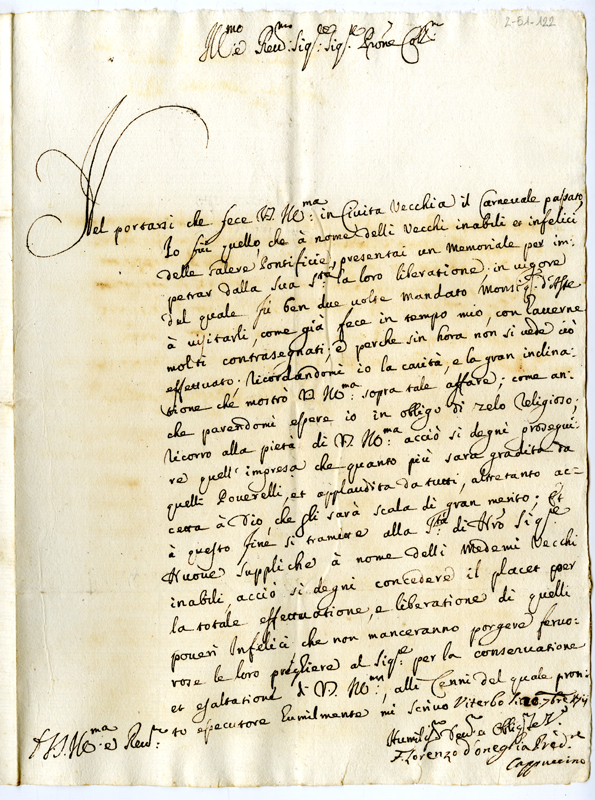 2-51-122
Ill.mo e Rev.mo Sig.r Sig.r Prone Coll.mo
Nel portarsi che fece V.S. Ill.ma in Civita Vecchia il Carnevale passato,
Io fui quello che à nome delli Vecchi inabili et infelici
delle Galere Pontificie, presentai un Memoriale per im:
petrar dalla Sua S.tà la loro liberatione; in vigore
del quale fù ben due volte mandato Monsig.r d'Aste
à visitarli, come già fece in tempo mio, con haverne
molti contrasegnati; e perche sin hora non si vede ciò
effettuato; ricordandomi io la carità, e la gran inclina:
tione che mostrò V.S. Ill.ma sopra tale affare; come an:
che parendomi essere io in obligo di zelo Religioso;
ricorro alla pietà di V.S. Ill.ma acciò si degni prosegui:
re quell' impresa che quanto più sarà gradita da
quelli Poverelli, et applaudita da tutti, altretanto ac:
cetta à Dio, che gli sarà scala di gran merito; Et
à questo fine si tramette alla S.tà di Nro Sig.re
Nuove suppliche à nome delli Medemi Vecchi
inabili, acciò si degni concedere il placet per
la totale effettuatione, e liberatione di quelli
poveri Infelici che non manceranno porgere fervo:
rose le loro preghiere al Sig.re per la conservatione
et esaltatione di V.S. Ill.ma, alli Cenni del quale pron:
to esecutore humilmente mi scrivo Viterbo li 20 7bre
D. V.S. Ill.ma e Rev.ma
Humiliss.o Dev.mo Oblig.mo
F. Lorenzo d'Oneglia Pred.re
Cappuccino